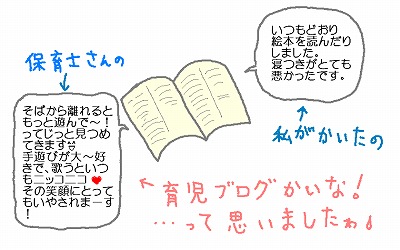 いつもどおり
絵本を読んだり
しました。
寝つきがとても
悪かったです。
私がかいたの
保育士さんの
そばから離れると
もっと遊んで〜!
ってじっと見つめ
てきますサ
手遊びが大〜好
きで、歌うといつ
もニッコニコ❤
その笑顔にとって
もいやされまーす
!
←育児ブログかいな!
…って思いましたわ